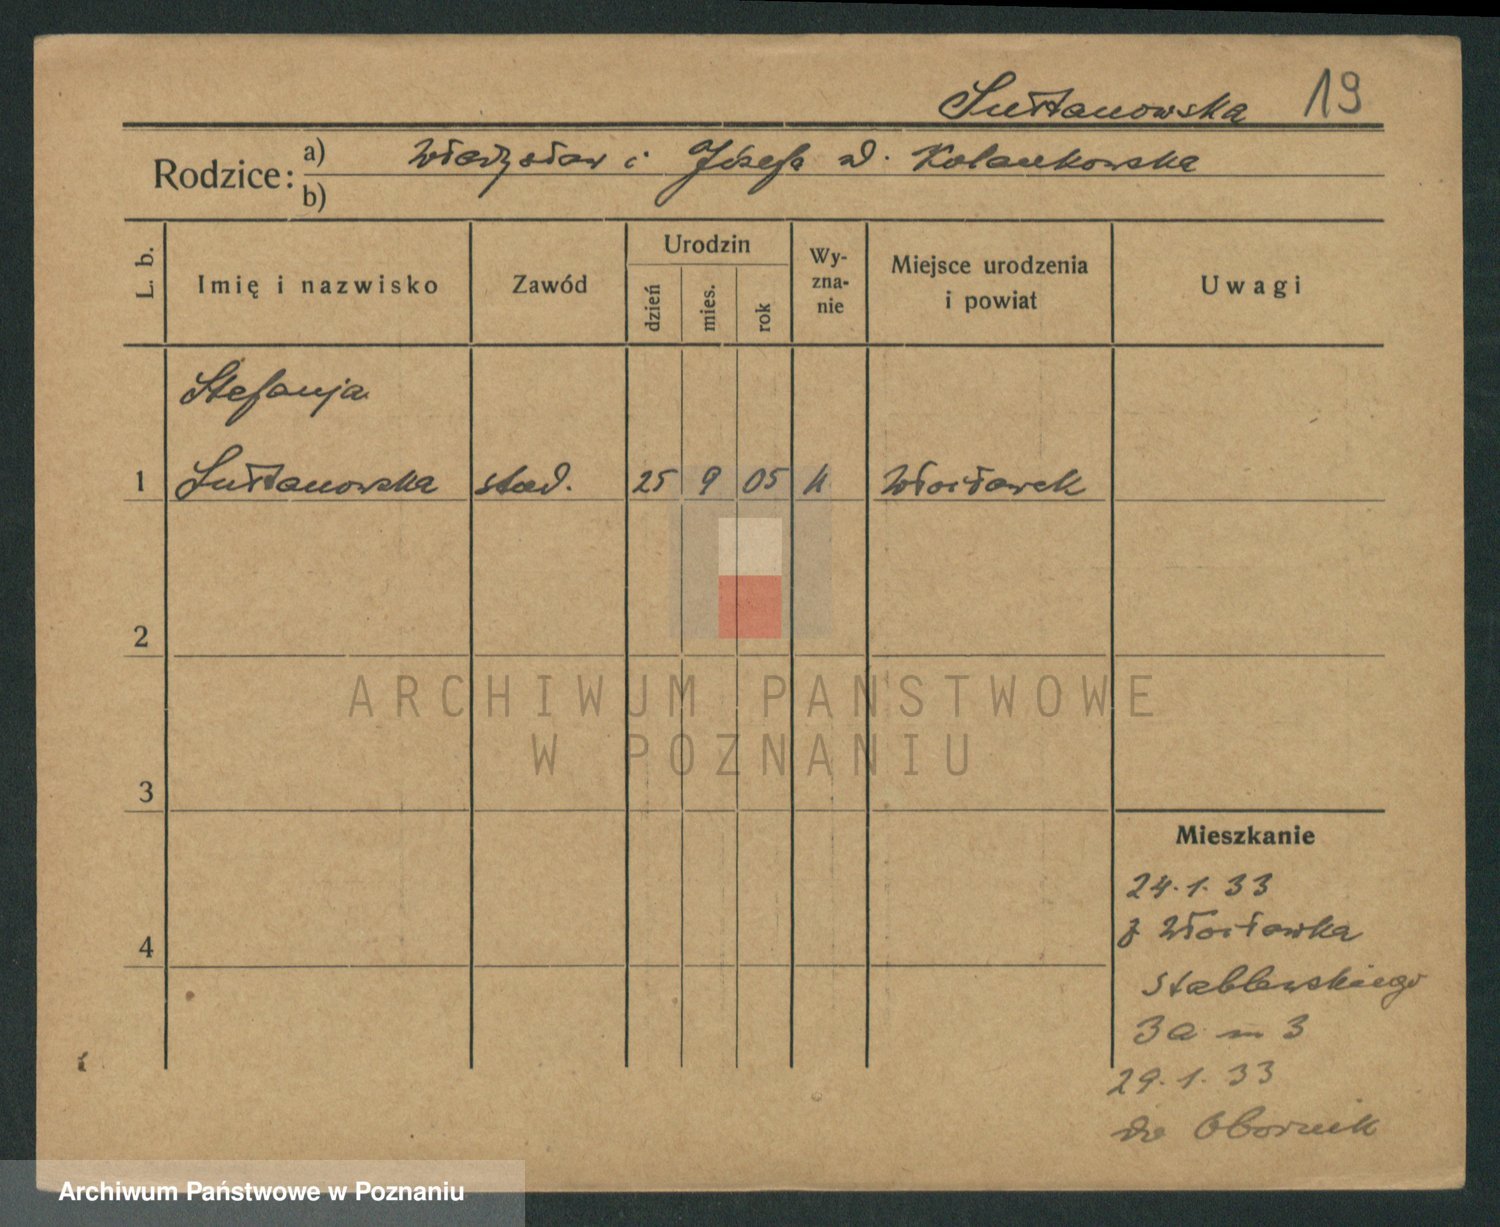 Sułtanowska 19
Rodzice: a) Władysław i Józefa d. Kolankowska
b)
L. b.
Imię i nazwisko
Zawód
Urodzin
dzień
mies.
rok
Wy-
zna-
nie
Miejsce urodzenia
i powiat
Uwagi
Stefanja
1 Sułtanowska stud. 25 9 05 k Włocławek
2
3
4
ARCHIWUM PAŃSTWOWE
W POZNANIU
Mieszkanie
24.1.33
z Włocławka
Stablewskiego
3a m 3
29.1.33
do Obornik
Archiwum Państwowe w Poznaniu